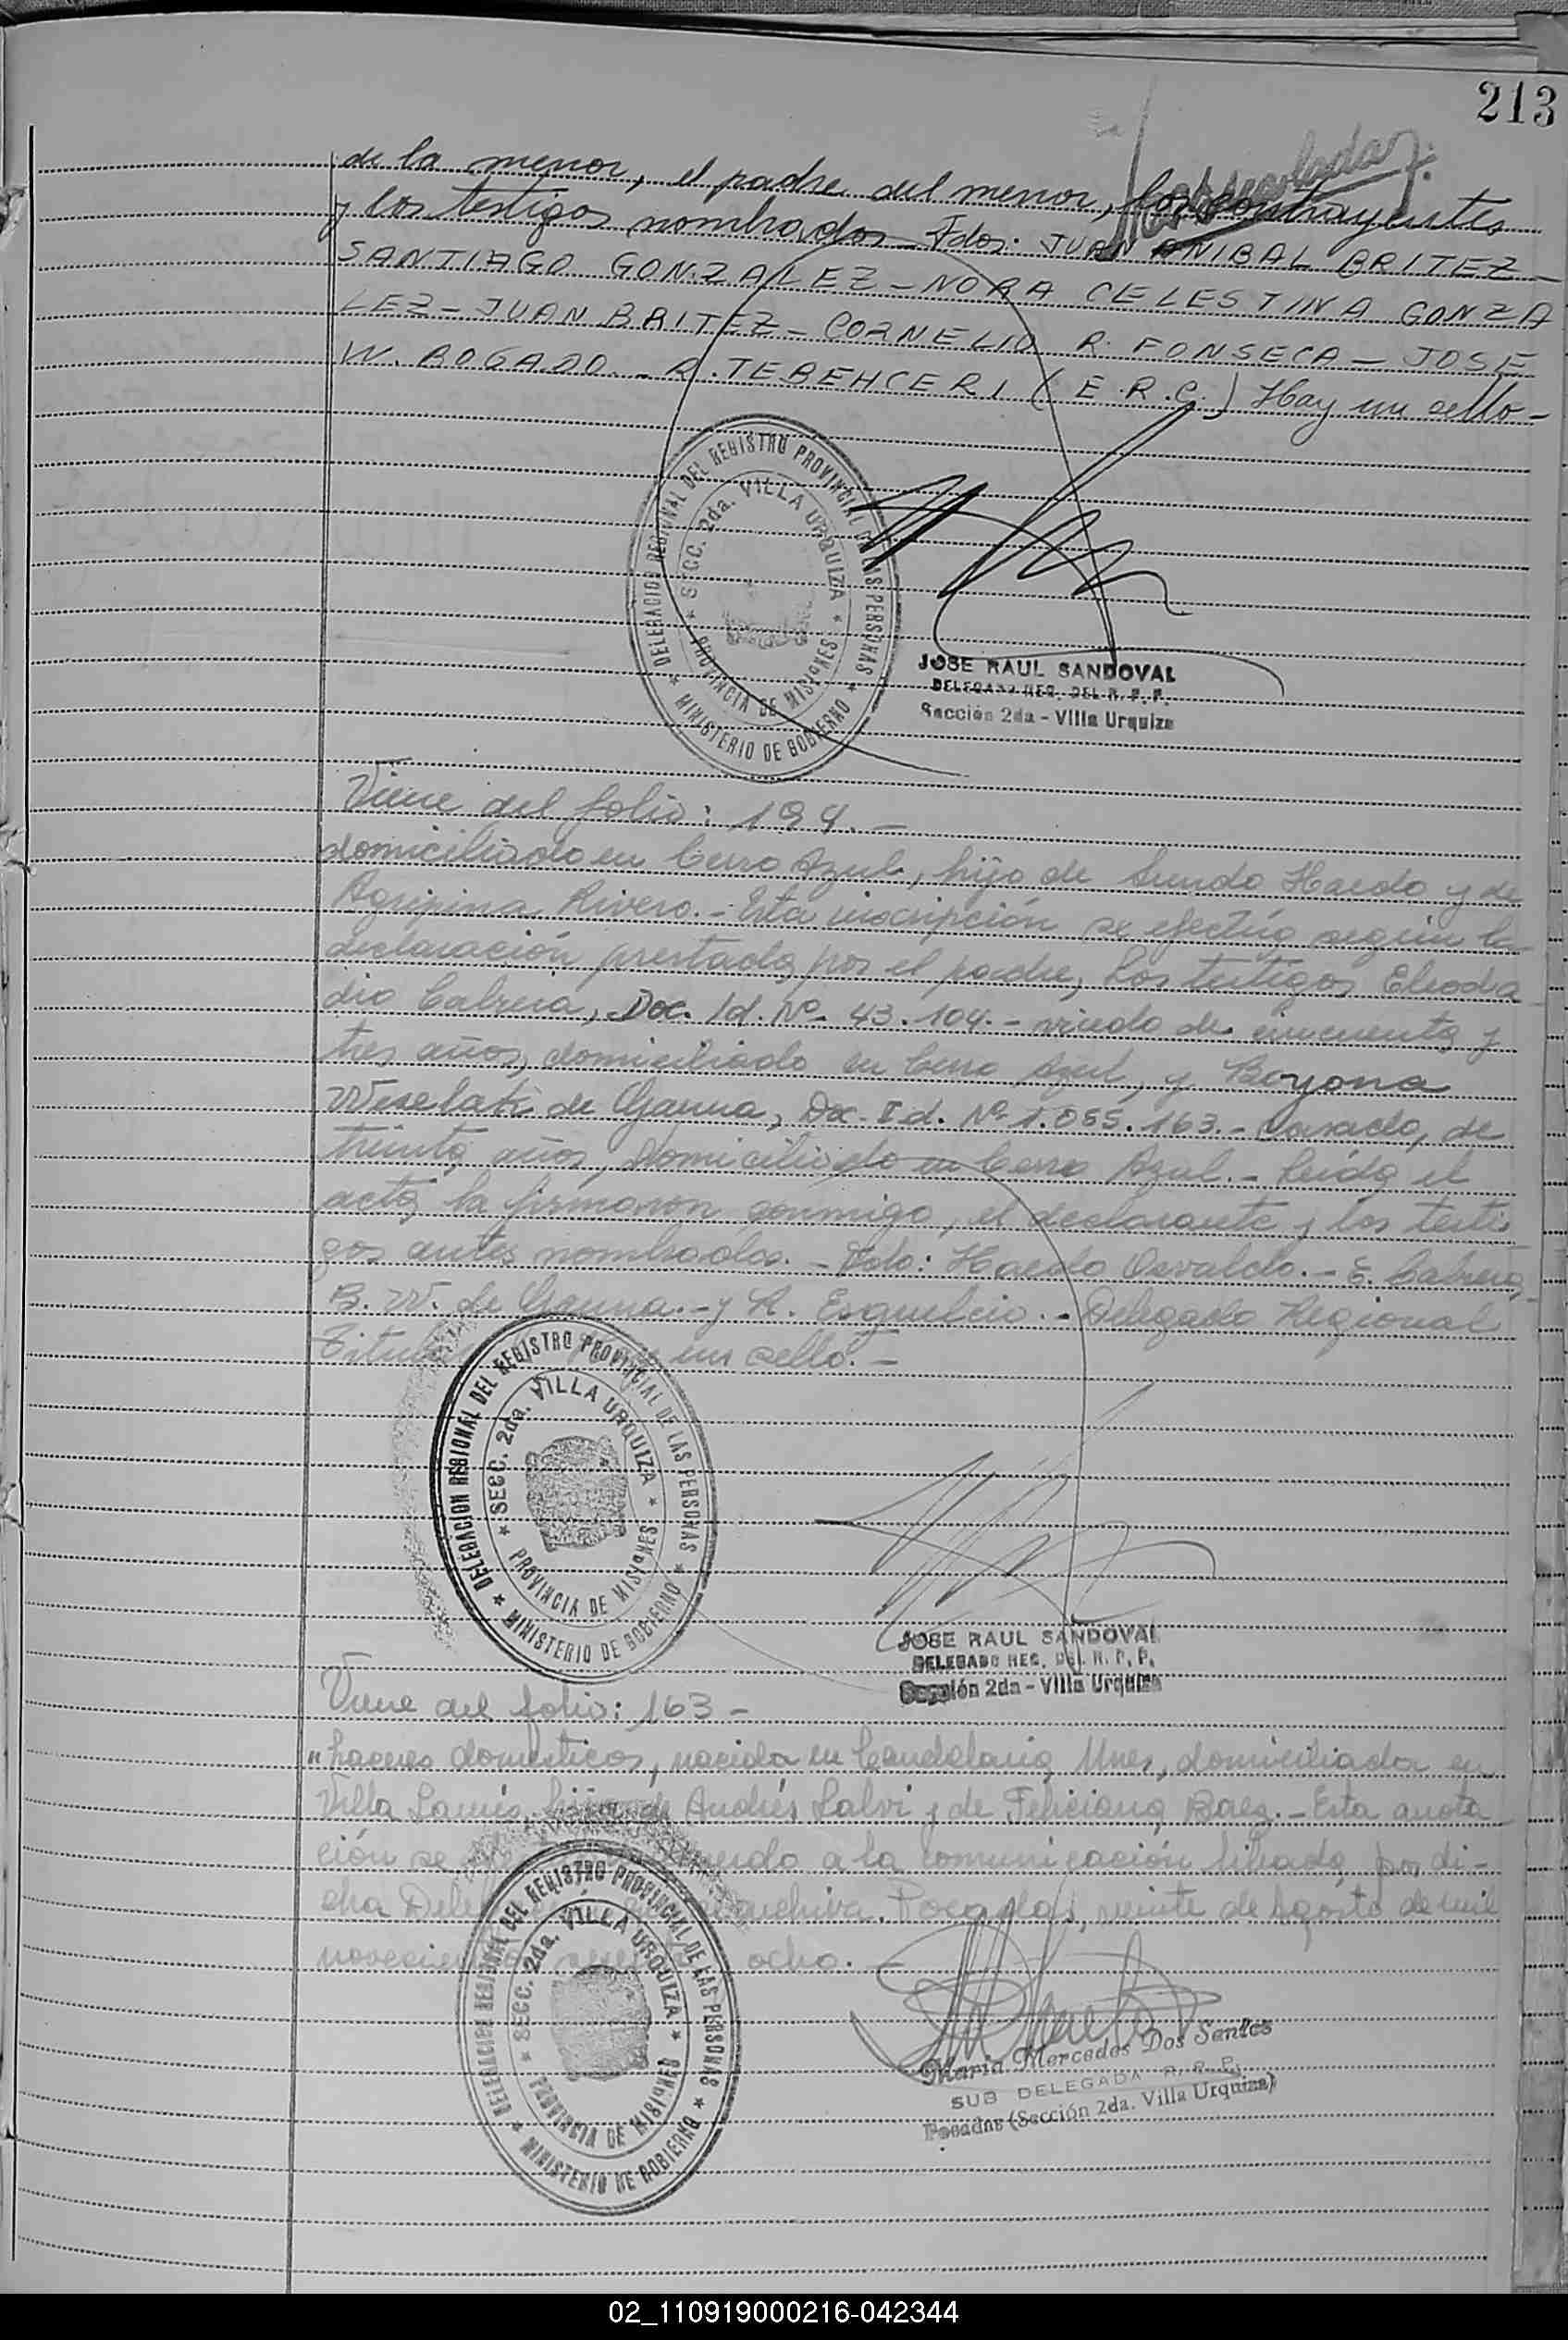 213
de la menor, el padre del menor, los contrayentes
y los testigos nombrados - Fdos: JUAN ANIBAL BRITEZ -
SANTIAGO GONZALEZ - NORA CELESTINA GONZA
LEZ - JUAN BRITEZ - CORNELIO R. FONSECA - JOSE
W. BOGADO. - R. TEBEHCERI (E.R.C.) Hay un sello -
DELEGACION REGIONAL DEL REGISTRO PROVINCIAL DE LAS PERSONAS
SECC. 2da. VILLA URQUIZA
PROVINCIA DE MISIONES
MINISTERIO DE GOBIERNO
JOSE RAUL SANDOVAL
DELEGADO REG. DEL R. P. P.
Sección 2da - Villa Urquiza
Viene del folio: 194. -
domiciliado en Cerro Azul, hijo de Haedo y de
Agripina Rivero. - Esta inscripción se efectúa según la
declaración prestada por el padre, Los testigos Eleodo
dio Cabrera, Doc. Id. Nº 43.104. - viudo de cincuenta y
tres años, domiciliado en Cerro Azul, y Boyona
de Gauna, Doc. Id. Nº 1.055.163. - Casado, de
treinta años, domiciliado en Cerro Azul. - Leída el
acta la firmaron conmigo, el declarante y los testi
gos antes nombrados. - Fdo: Haedo Osvaldo. - E. Cabrera,
B. W. de Gauna. - y A. Esquelcio. - Delegado Regional
un sello. -
DELEGACION REGIONAL DEL REGISTRO PROVINCIAL DE LAS PERSONAS
SECC. 2da. VILLA URQUIZA
PROVINCIA DE MISIONES
MINISTERIO DE GOBIERNO
JOSE RAUL SANDOVAL
DELEGADO REG. DEL R. P. P.
Sección 2da - Villa Urquiza
Viene del folio: 163 -
"haceres domésticos, nacida en Candelaria, Mnes, domiciliada en
Villa Lanús, hija de Andrés Salvi y de Feliciana Baez. - Esta anota
ción se a la comunicación librada por di-
cha Posadas, veinte de Agosto de mil
ocho. -
DELEGACION REGIONAL DEL REGISTRO PROVINCIAL DE LAS PERSONAS
SECC. 2da. VILLA URQUIZA
PROVINCIA DE MISIONES
MINISTERIO DE GOBIERNO
Maria Mercedes Dos Santos
SUB DELEGADA R. R. P.
Posadas (Sección 2da. Villa Urquiza)
02_110919000216-042344